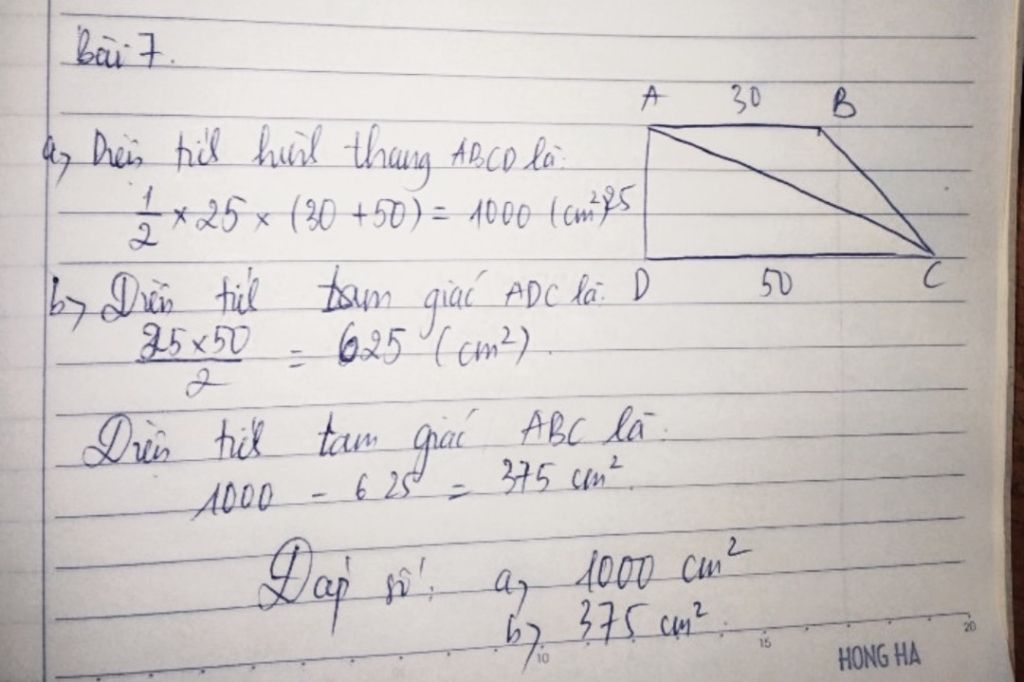 Bài 7.
A 30 B
a, Diện tích hình thang ABCD là:
1/2 × 25 × (30 + 50) = 1000 (cm²) 25
D 50 C
b, Diện tích tam giác ADC là:
25 × 50 / 2 = 625 (cm²).
Diện tích tam giác ABC là:
1000 - 625 = 375 cm².
Đáp số: a, 1000 cm²
b, 375 cm².
10 15 20
HONG HA